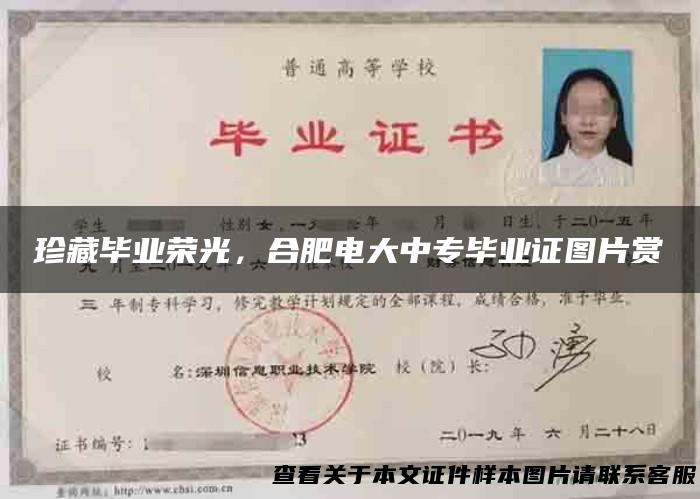 普通高等学校
毕业证书
学生 性别 女，一 年 月 日生，于二〇一五年
珍藏毕业荣光，合肥电大中专毕业证图片赏
三 年制专科学习，修完教学计划规定的全部课程，成绩合格，准予毕业。
校 名：深圳信息职业技术学院 校（院）长：
证书编号：
二〇一九年 六 月二十八日
查询网址：http://www.chsi.com.cn
查看关于本文证件样本图片请联系客服